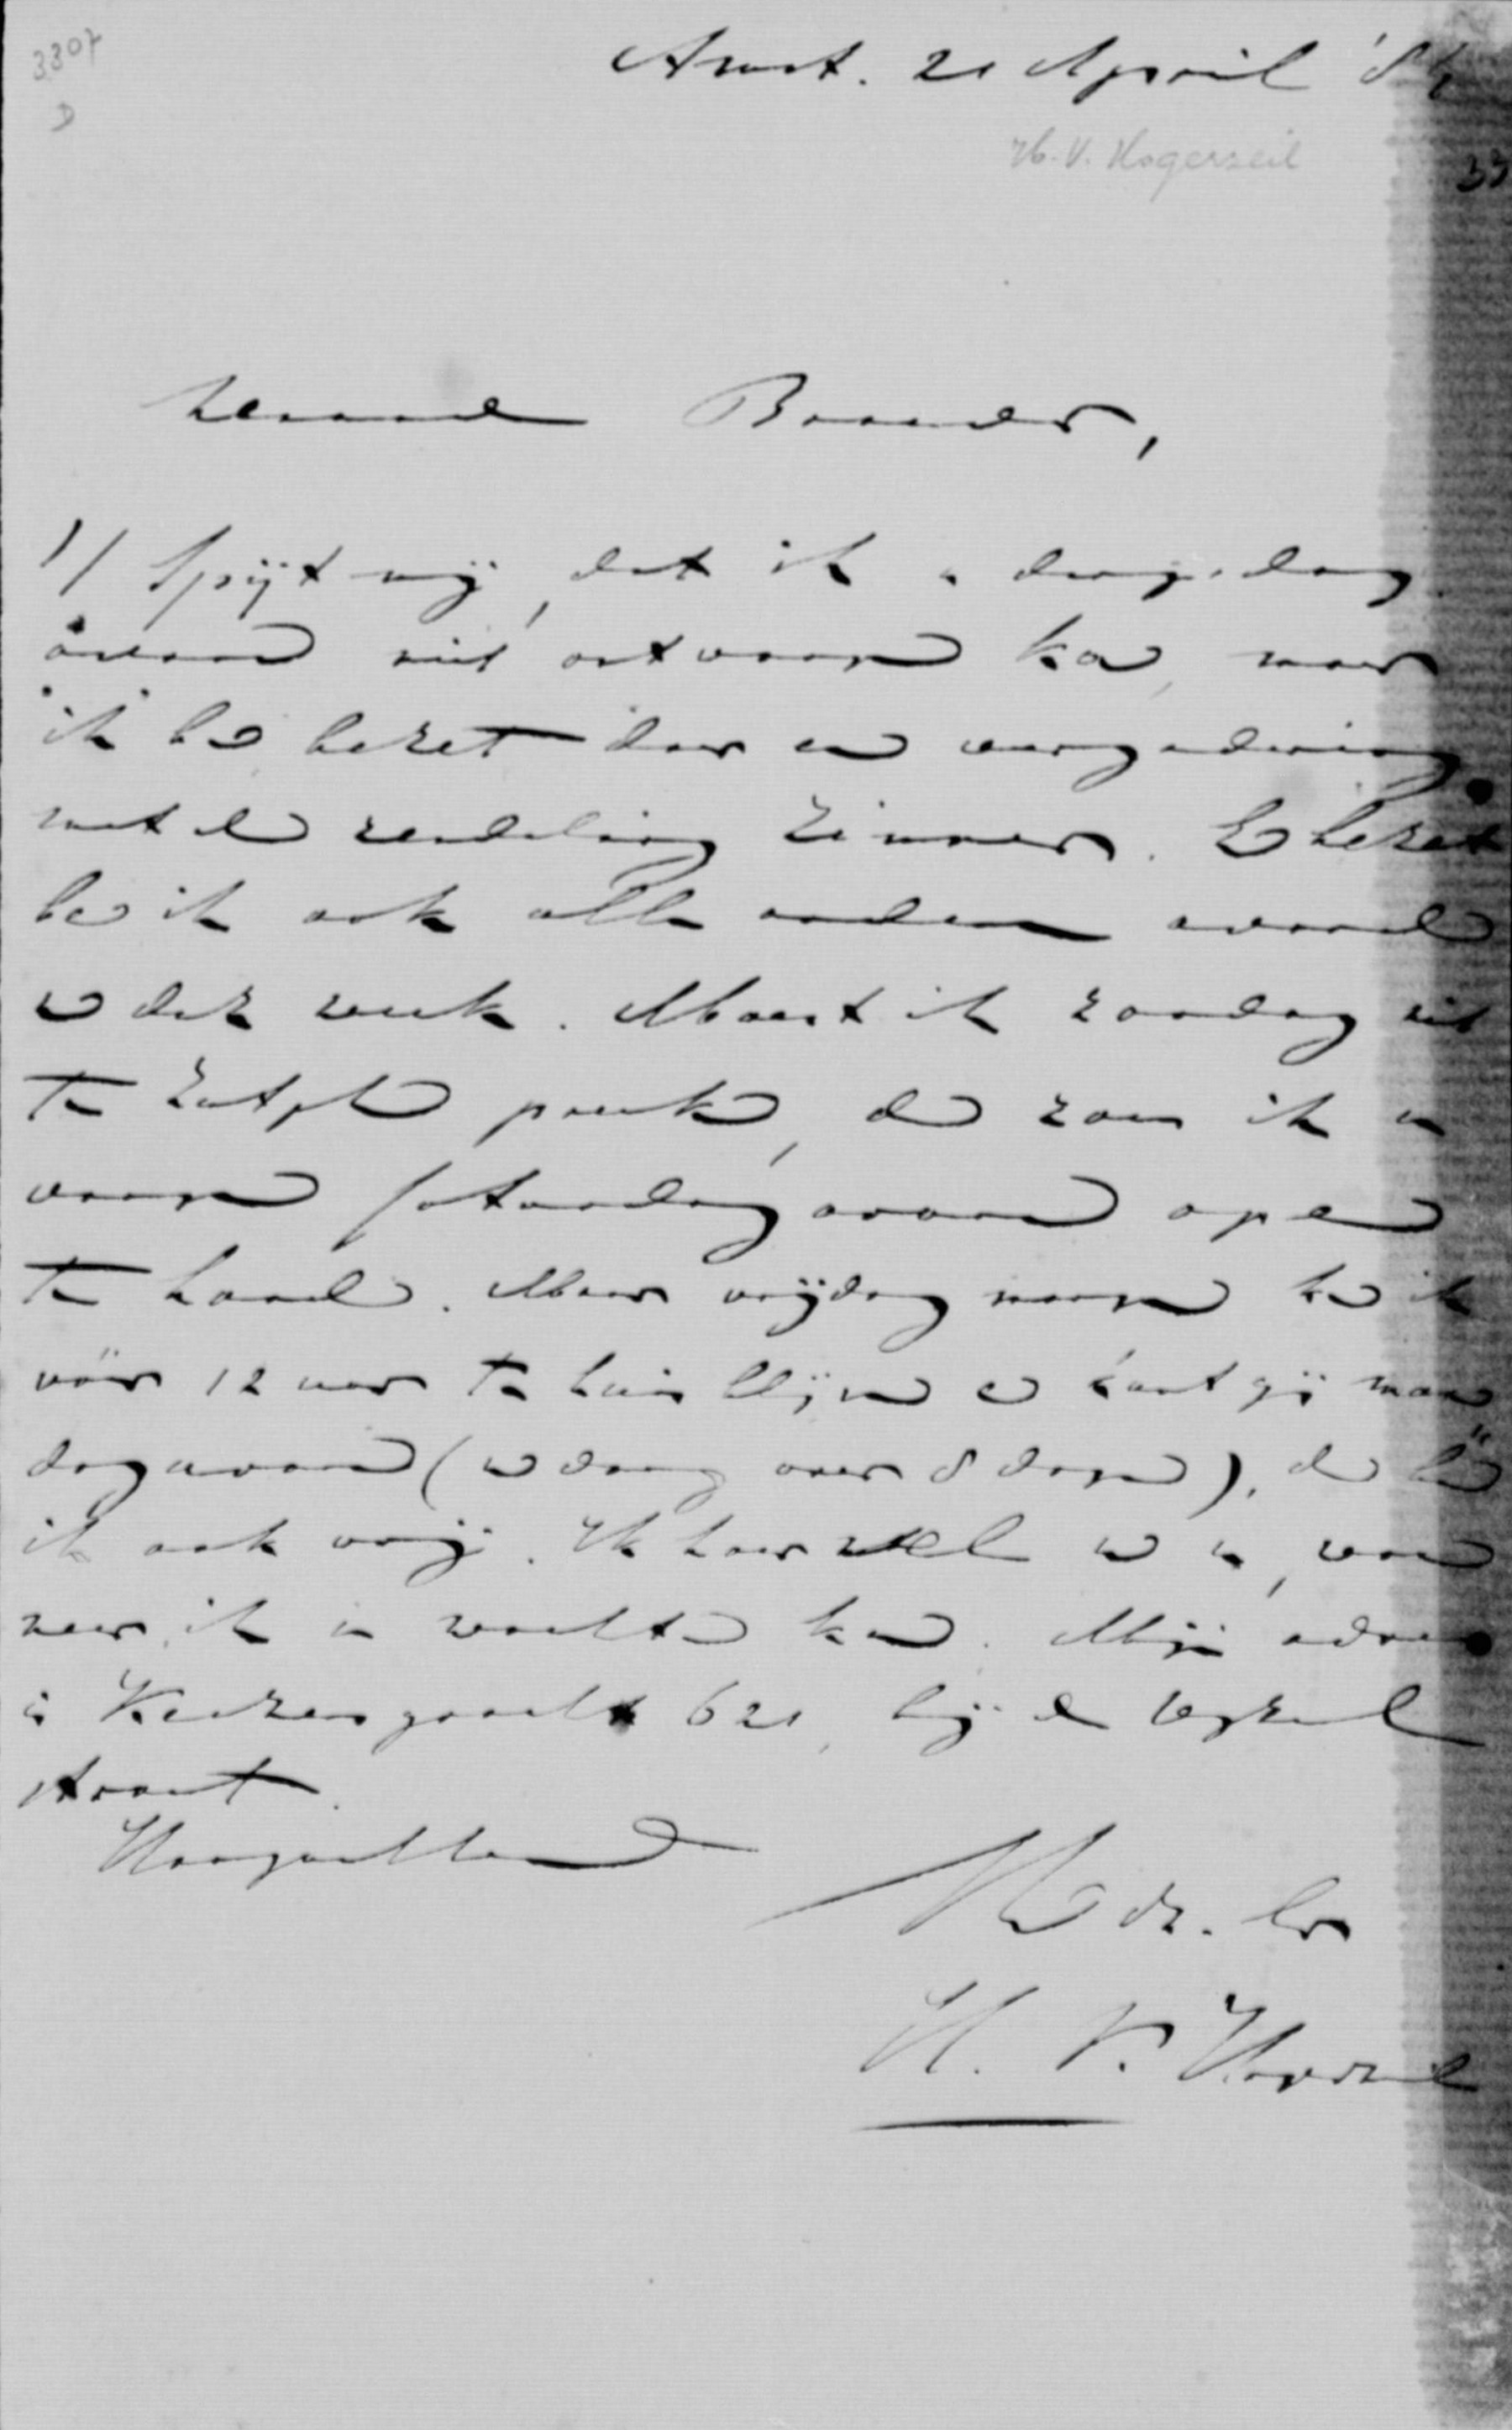 3307
D
Amst. 21 April '8
H. V. Hogerzeil
33
Waarde Broeder,
't Spijt mij, dat ik u dinsdag
avond niet ontvangen kan, maar
ik ben bezet door een vergadering
met den zendeling Zimmer. En bezet
ben ik ook alle andere avonden
van deze week. Moest ik zondag niet
te Zutphen preeken, dan zou ik u
vragen saturdag avond open
te houden. Maar vrijdag morgen kan ik
vóór 12 uur te huis blijven en kunt gij maan
dag avond (van daag over 8 dagen), dan ben
ik ook vrij. Ik hoor wel van u, wan
neer ik u wachten kan. Mijn adres
is Keizersgracht 621, bij de Leidsche
straat.
Hoogachtend
H. V. Hogerzeil